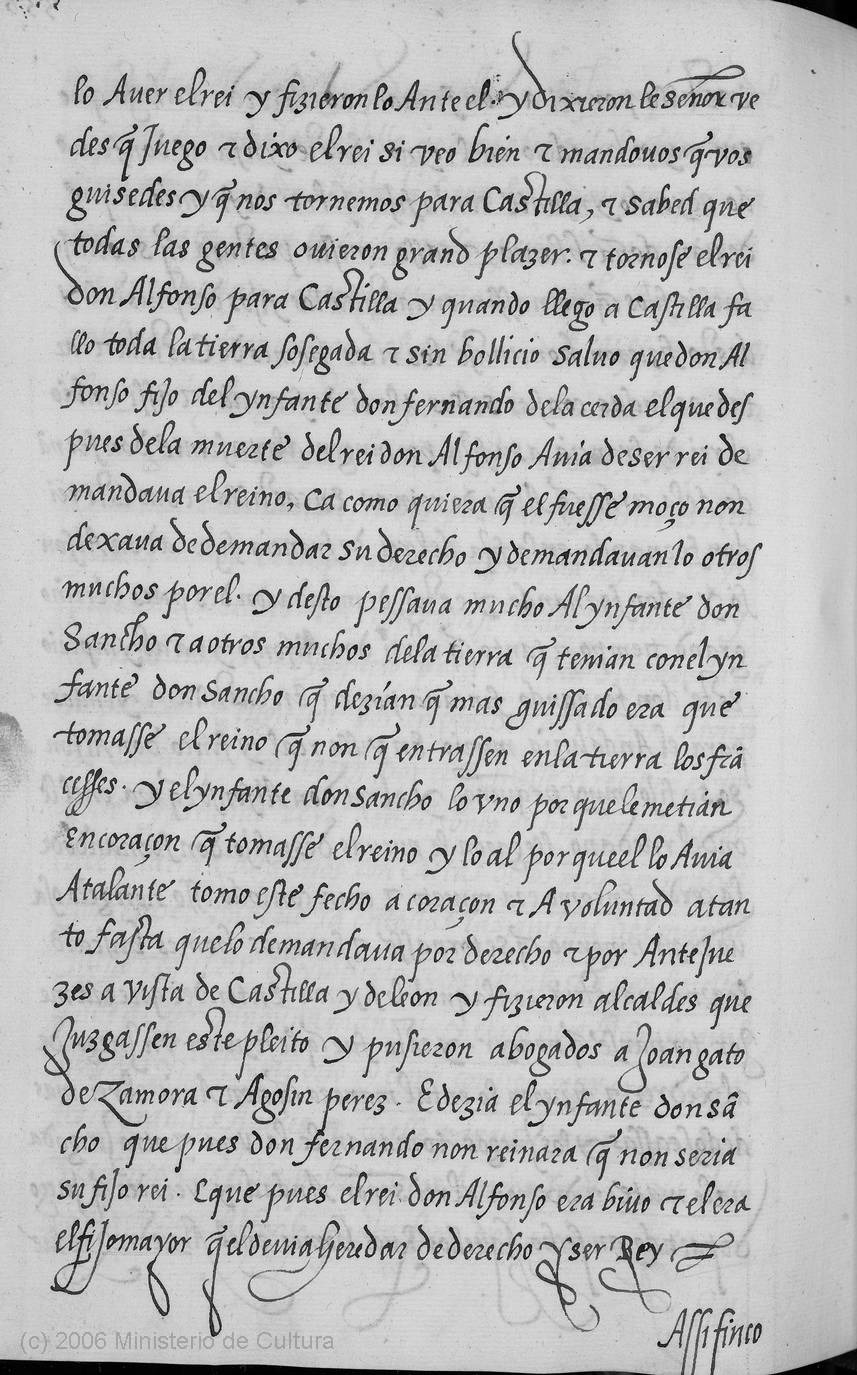 lo Auer el rei y fizieron lo Ante el. y dixieron le señor ve
des q̃ Juego ⁊ dixo el rei si veo bien ⁊ mandouos q̃ vos
guisedes y q̃ nos tornemos para Castilla, ⁊ sabed que
todas las gentes ouieron grand plazer. ⁊ tornose el rei
don Alfonso para Castilla y quando llego a Castilla fa
llo toda la tierra sosegada ⁊ sin bollicio saluo que don Al
fonso fijo del ynfante don fernando de la cerda el que des
pues de la muerte del rei don Alfonso Auia de ser rei de
mandaua el reino, ca como quiera q̃ el fuesse moço non
dexaua de demandar su derecho y demandauan lo otros
muchos por el. y desto pessaua mucho Al ynfante don
Sancho ⁊ a otros muchos de la tierra q̃ tenian con el yn
fante don Sancho q̃ dezian q̃ mas guissado era que
tomasse el reino q̃ non q̃ entrassen en la tierra los frã
cesses. y el ynfante don Sancho lo vno por que le metian
En coraçon q̃ tomasse el reino y lo al por que el lo Auia
Atalante tomo este fecho a coraçon ⁊ A voluntad a tan
to fasta que lo demandaua por derecho ⁊ por Ante Jue
zes a vista de Castilla y de leon y fizieron alcaldes que
Juzgassen este pleito y pusieron abogados a Joan gato
de Zamora ⁊ Agosin perez. E dezia el ynfante don sã
cho que pues don fernando non reinara q̃ non seria
su fijo rei. E que pues el rei don Alfonso era biuo ⁊ el era
el fijo mayor q̃ el deuia heredar de derecho y ser Rey
Assi finco
(c) 2006 Ministerio de Cultura